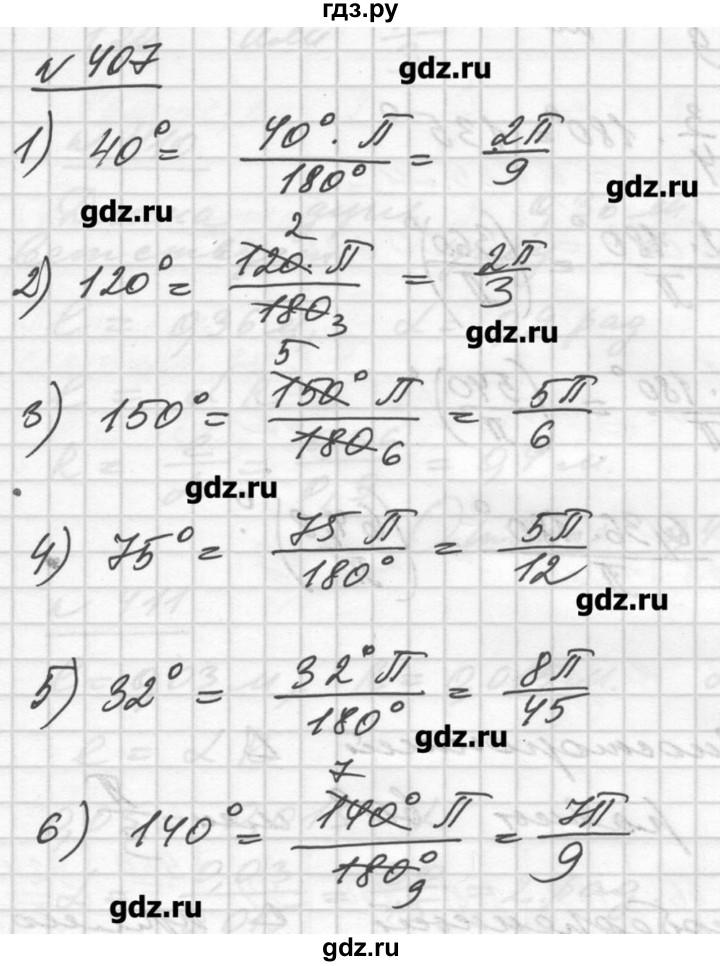 гдз.ру
N 407
gdz.ru
1) 40° = 40°·П/180° = 2П/9
gdz.ru
gdz.ru
2) 120° = 2 120·П/180 3 = 2П/3
gdz.ru
3) 150° = 5 150° П/180 6 = 5П/6
gdz.ru
4) 75° = 75 П/180° = 5П/12
gdz.ru
5) 32° = 32° П/180° = 8П/45
gdz.ru
6) 140° = 7 140° П/180° 9 = 7П/9
gdz.ru
gdz.ru